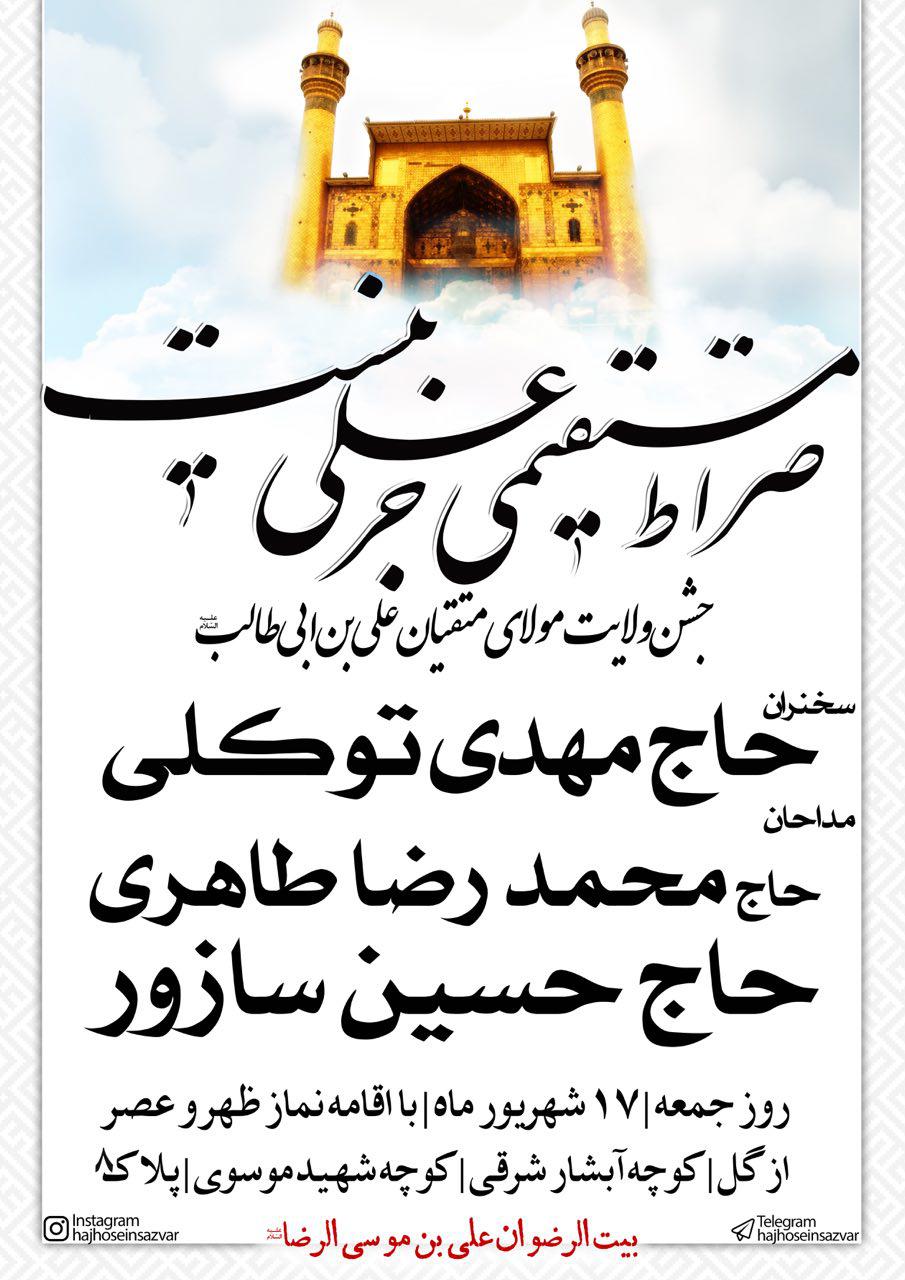 صراط مستقیمی جز علی نیست
جشن ولایت مولای متقیان علی بن ابی طالب علیه السلام
سخنران
حاج مهدی توکلی
مداحان
حاج محمد رضا طاهری
حاج حسین سازور
روز جمعه|۱۷ شهریور ماه|با اقامه نماز ظهر و عصر
ازگل|کوچه آبشار شرقی|کوچه شهید موسوی|پلاک۸
بیت الرضوان علی بن موسی الرضا علیه السلام
Instagram
hajhoseinsazvar
Telegram
hajhoseinsazvar